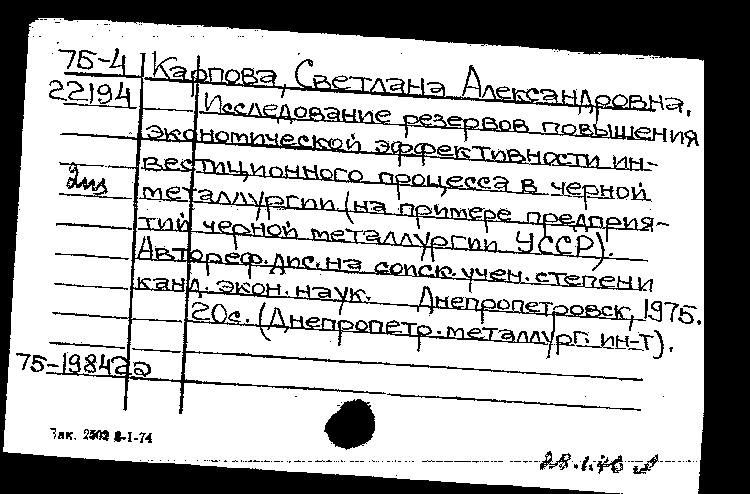 75-4 Карпова, Светлана Александровна.
22194 Исследование резервов повышения
экономической эффективности ин-
вестиционного процесса в черной
металлургии (на примере предприя-
тий черной металлургии УССР).
Автореф. дис. на соиск. учен. степени
канд. экон. наук. Днепропетровск, 1975.
20с. (Днепропетр. металлург. ин-т).
75-19842а
Зак. 2502 8-I-74